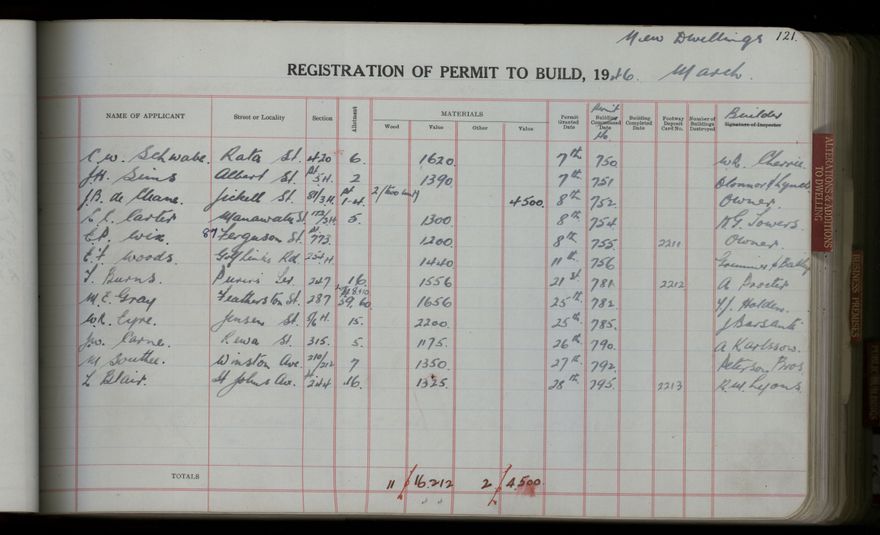 New Dwellings 121.
REGISTRATION OF PERMIT TO BUILD, 1946. March.
NAME OF APPLICANT Street or Locality Section Allotment MATERIALS Wood Value Other Value Permit Granted Date Permit Building Commenced Date No. Building Completed Date Footway Deposit Card No. Number of Buildings Destroyed Builder Signature of Inspector
C.W. Schwabe. Rata St. 420 6. 1620. 7th 750 Cherrie
J.H. Sims Albert St. 2 1390. 7th 751
J.B. de Chane. Jickell St. 2 (two units) 4500. 8th 752 Owner.
C.C. Carter Manawatu St. 5. 1300. 8th 754 Sowers.
C.P. Wix. 87 Ferguson St. Pt 773. 1200. 8th 755 2211 Owner.
C.F. Woods. Golf Links Rd. 1440. 11th 756
T. Burns. Puriri Ter. 247 16. 1556 21st 781 2212 A Procter
M.E. Gray Featherston St. 287 59.60. 1656 25th 782 Holden.
W.R. Eyre. Jensen St. 15. 2200. 25th 785. J Barsanti
J.W. Carne. Rewa St. 315. 5. 1175. 26th 790. A Karlsson.
M. Southee. Winston Ave. 210/212 7 1350. 27th 792. Peterson Bros.
L Blair. St Johns Av. 244 16. 1325 28th 795. 2213 R.W. Lyons.
TOTALS 11 / 16.212 2 / 4.500.
ALTERATIONS & ADDITIONS TO DWELLING
BUSINESS PREMISES